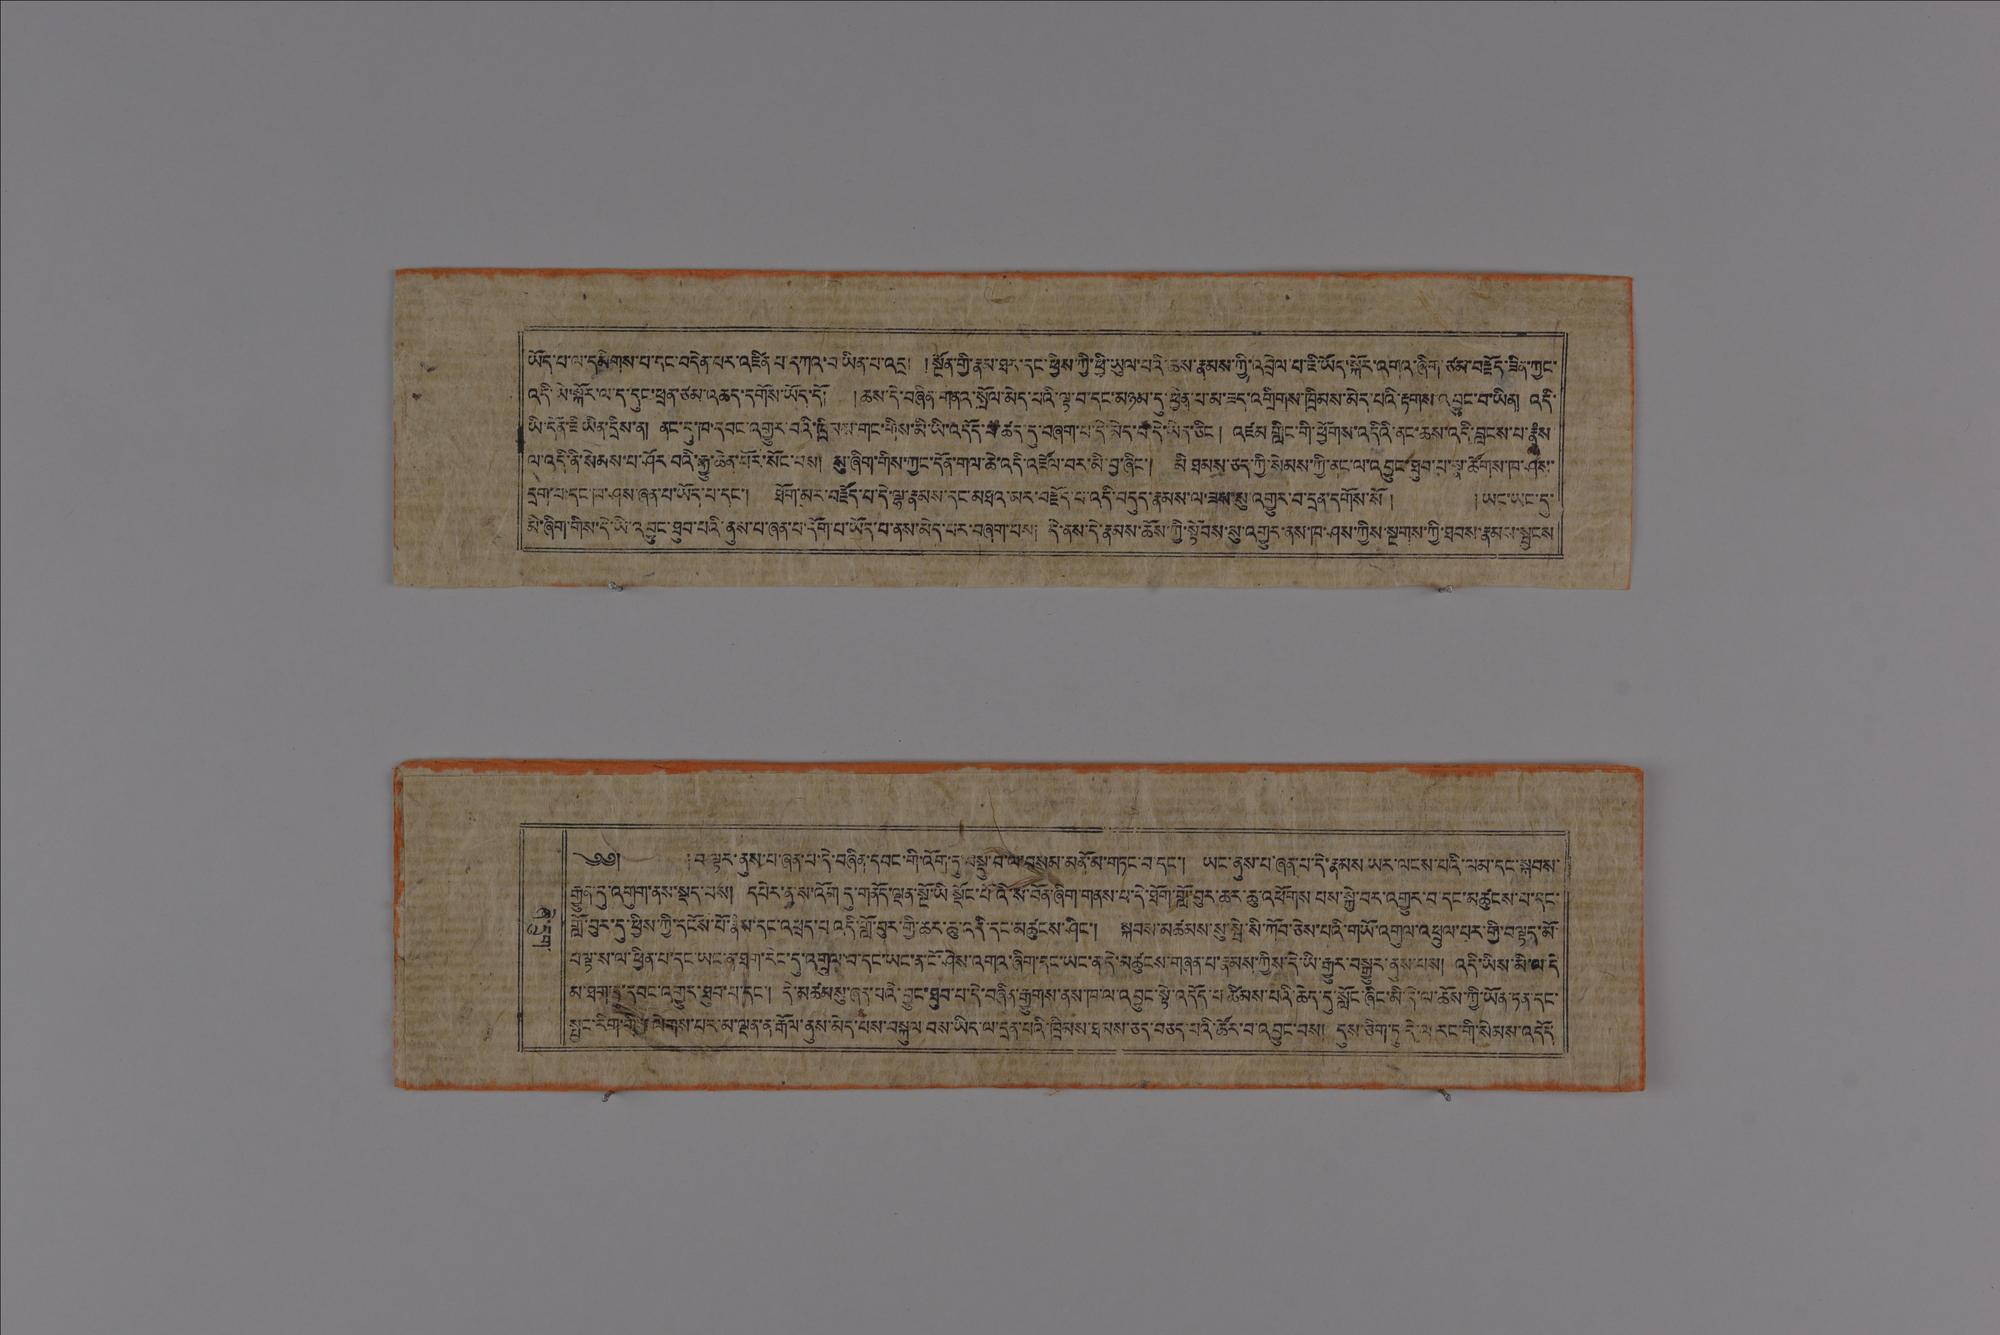 ཡོད་པ་ལ་དམིགས་པ་དང་བདེན་པར་འཛིན་པ་དཀའ་བ་ཡིན་པ་འདྲ། །སྔོན་གྱི་རྣམ་ཐར་དང་ཕྱིས་ཀྱི་ཕྱི་ཡུལ་པའི་ཆས་རྣམས་ཀྱི་འབྲེལ་པ་ཇི་ཡོད་སྐོར་འགའ་ཞིག་ཙམ་བརྗོད་ཟིན་ཀྱང་
འདི་མེ་སྐོར་ལ་ད་དུང་ཕྲན་ཙམ་འཆད་དགོས་ཡོད་དོ། །ཆས་དེ་བཞིན་གནའ་སྲོལ་མེད་པའི་ལྟ་བ་དང་མཉམ་དུ་ཕྱིན་པ་མ་ཟད་འགྲིགས་ཁྲིམས་མེད་པའི་རྟགས་འབྱུང་བ་ཡིན། འདི་
ཡི་དོན་ཇི་ཡིན་དྲིས་ན། ནང་དུ་ཁ་དབང་འགྱུར་བའི་ གང་ཞིས་མི་ཡི་འདོད་ ཚད་དུ་བཞག་པ་དེ་མེད་ དེ་ཡིན་ཅིང་། འཛམ་གླིང་གི་ཕྱོགས་འདིའི་ནང་ཆས་འདི་བླངས་པ་རྣམས
ལ་འདི་ནི་སེམས་པ་ཤོར་བའི་རྒྱུ་ཆེན་པོར་སོང་པས། སུ་ཞིག་གིས་ཀྱང་དོན་གལ་ཆེ་འདི་འཛོལ་བར་མི་བྱ་ཞིང་། མི་ཐམས་ཅད་ཀྱི་སེམས་ཀྱི་ནང་ལ་འབྱུང་ཐུབ་པ་སྣ་ཚོགས་ཁ་ཤས་
དྲག་པ་དང་ཁ་ཤས་ཞན་པ་ཡོད་པ་དང་། ཐོག་མར་བརྗོད་པ་དེ་ལྟ་རྣམས་དང་མཐའ་མར་བརྗོད་པ་འདི་བདུད་རྣམས་ལ་ཟས་སུ་འགྱུར་བ་དྲན་དགོས་སོ། །ཡང་ཡང་དུ་
མི་ཞིག་གིས་དེ་ཡི་འབྱུང་ཐུབ་པའི་ནུས་པ་ཞན་པ་དོག་པ་ཡོད་པ་ནས་མེད་པར་བཞག་པས། དེ་ནས་དེ་རྣམས་ཆོས་ཀྱི་སྟོབས་སུ་འགྱུར་ནས་ཁ་ཤས་ཀྱིས་སྔགས་ཀྱི་ཐབས་རྣམས་སྦྱངས
༄༅། །བ་ལྟར་ནུས་པ་ཞན་པ་དེ་བཞིན་དབང་གི་འོག་ཏུ་བསྡུ་བ་ལ་བསམ་མནོ་མ་གཏང་བ་དང་། ཡང་ནུས་པ་ཞན་པ་དེ་རྣམས་ཡར་ལངས་པའི་ལམ་དང་སྐབས་
རྒྱུན་དུ་འགུག་ནས་སྡད་པས། དཔེར་ན་ས་འོག་དུ་གནོད་ལྡན་སྔོ་ཡི་སྡོང་པོ་འི་ས་བོན་ཞིག་གནས་པ་དེ་ཐོག་གློ་བུར་ཆར་ཆུ་འཕོགས་པས་སྐྱེ་བར་འགྱུར་བ་དང་མཚུངས་པ་དང་
གློ་བུར་དུ་ཕྱིས་ཀྱི་དངོས་པོ་ དང་འཕྲད་པ་འདི་གློ་བུར་གྱི་ཆར་ཆུ་འདི་དང་མཚུངས་ཤིང་། སྐབས་མཚམས་སུ་སྤྲེ་སི་ཀོབ་ཅེས་པའི་གཡོ་འགུལ་འཕྲུལ་པར་གྱི་བལྟད་མོ་
པ་ལྟ་ས་ལ་ཕྱིན་པ་དང་ཡང་ན་ཐག་རིང་དུ་འགྲུལ་བ་དང་ཡང་ན་ངོ་ཤེས་འགའ་ཞིག་དང་ཡང་ན་དེ་མཚུངས་གཞན་པ་རྣམས་ཀྱིས་དེ་ཡི་རྒྱུར་བསྒྱུར་ནུས་པས། འདི་ཡིས་མི་ལ་དེ
མ་ཐག་ཏུ་དབང་འགྱུར་ཐུབ་པ་དང་། དེ་མཚམས་སུ་ཞན་པའི་བྱུང་ཐུབ་པ་དེ་བཞིན་རྒྱུགས་ནས་ཁ་ལ་འབྱུང་སྟེ་འདོད་པ་ཚིམས་པའི་ཆེད་དུ་སློང་ཞིང་མི་དེ་ལ་ཆོས་ཀྱི་ཡོན་ཏན་དང་
སྤྱང་རིག་གི་ ལེགས་པར་མ་ལྡན་ན་རྒོལ་ནུས་མེད་པས་བསྐུལ་བས་ཡིད་ལ་དྲན་པའི་ཁྲིམས་ཐམས་ཅད་བཅད་པའི་ཚོར་བ་འབྱུང་བས། དུས་ཅིག་ཏུ་དེ་ལ་རང་གི་སེམས་འདོད